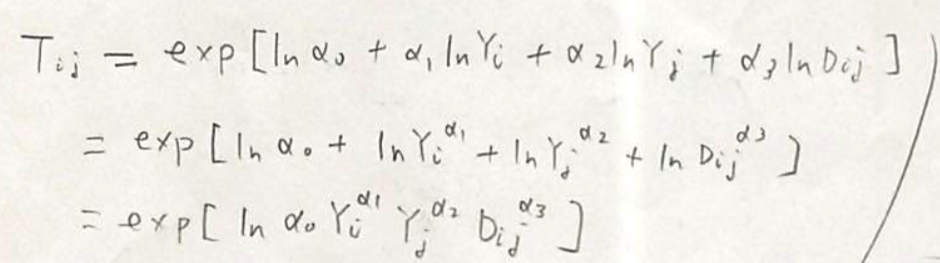 T_{ij} = exp[ln α_0 + α_1 ln Y_i + α_2 ln Y_j + α_3 ln D_{ij}]
= exp[ln α_0 + ln Y_i^{α_1} + ln Y_j^{α_2} + ln D_{ij}^{α_3}]
= exp[ln α_0 Y_i^{α_1} Y_j^{α_2} D_{ij}^{α_3}]